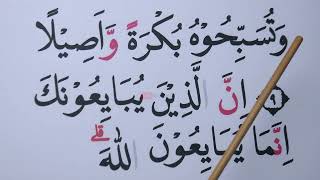 وَتُسَبِّحُوْهُ بُكْرَةً وَّاَصِيْلًا
۹ اِنَّ الَّذِيْنَ يُبَايِعُوْنَكَ
اِنَّمَا يُبَايِعُوْنَ اللّٰهَ ؕ قلے